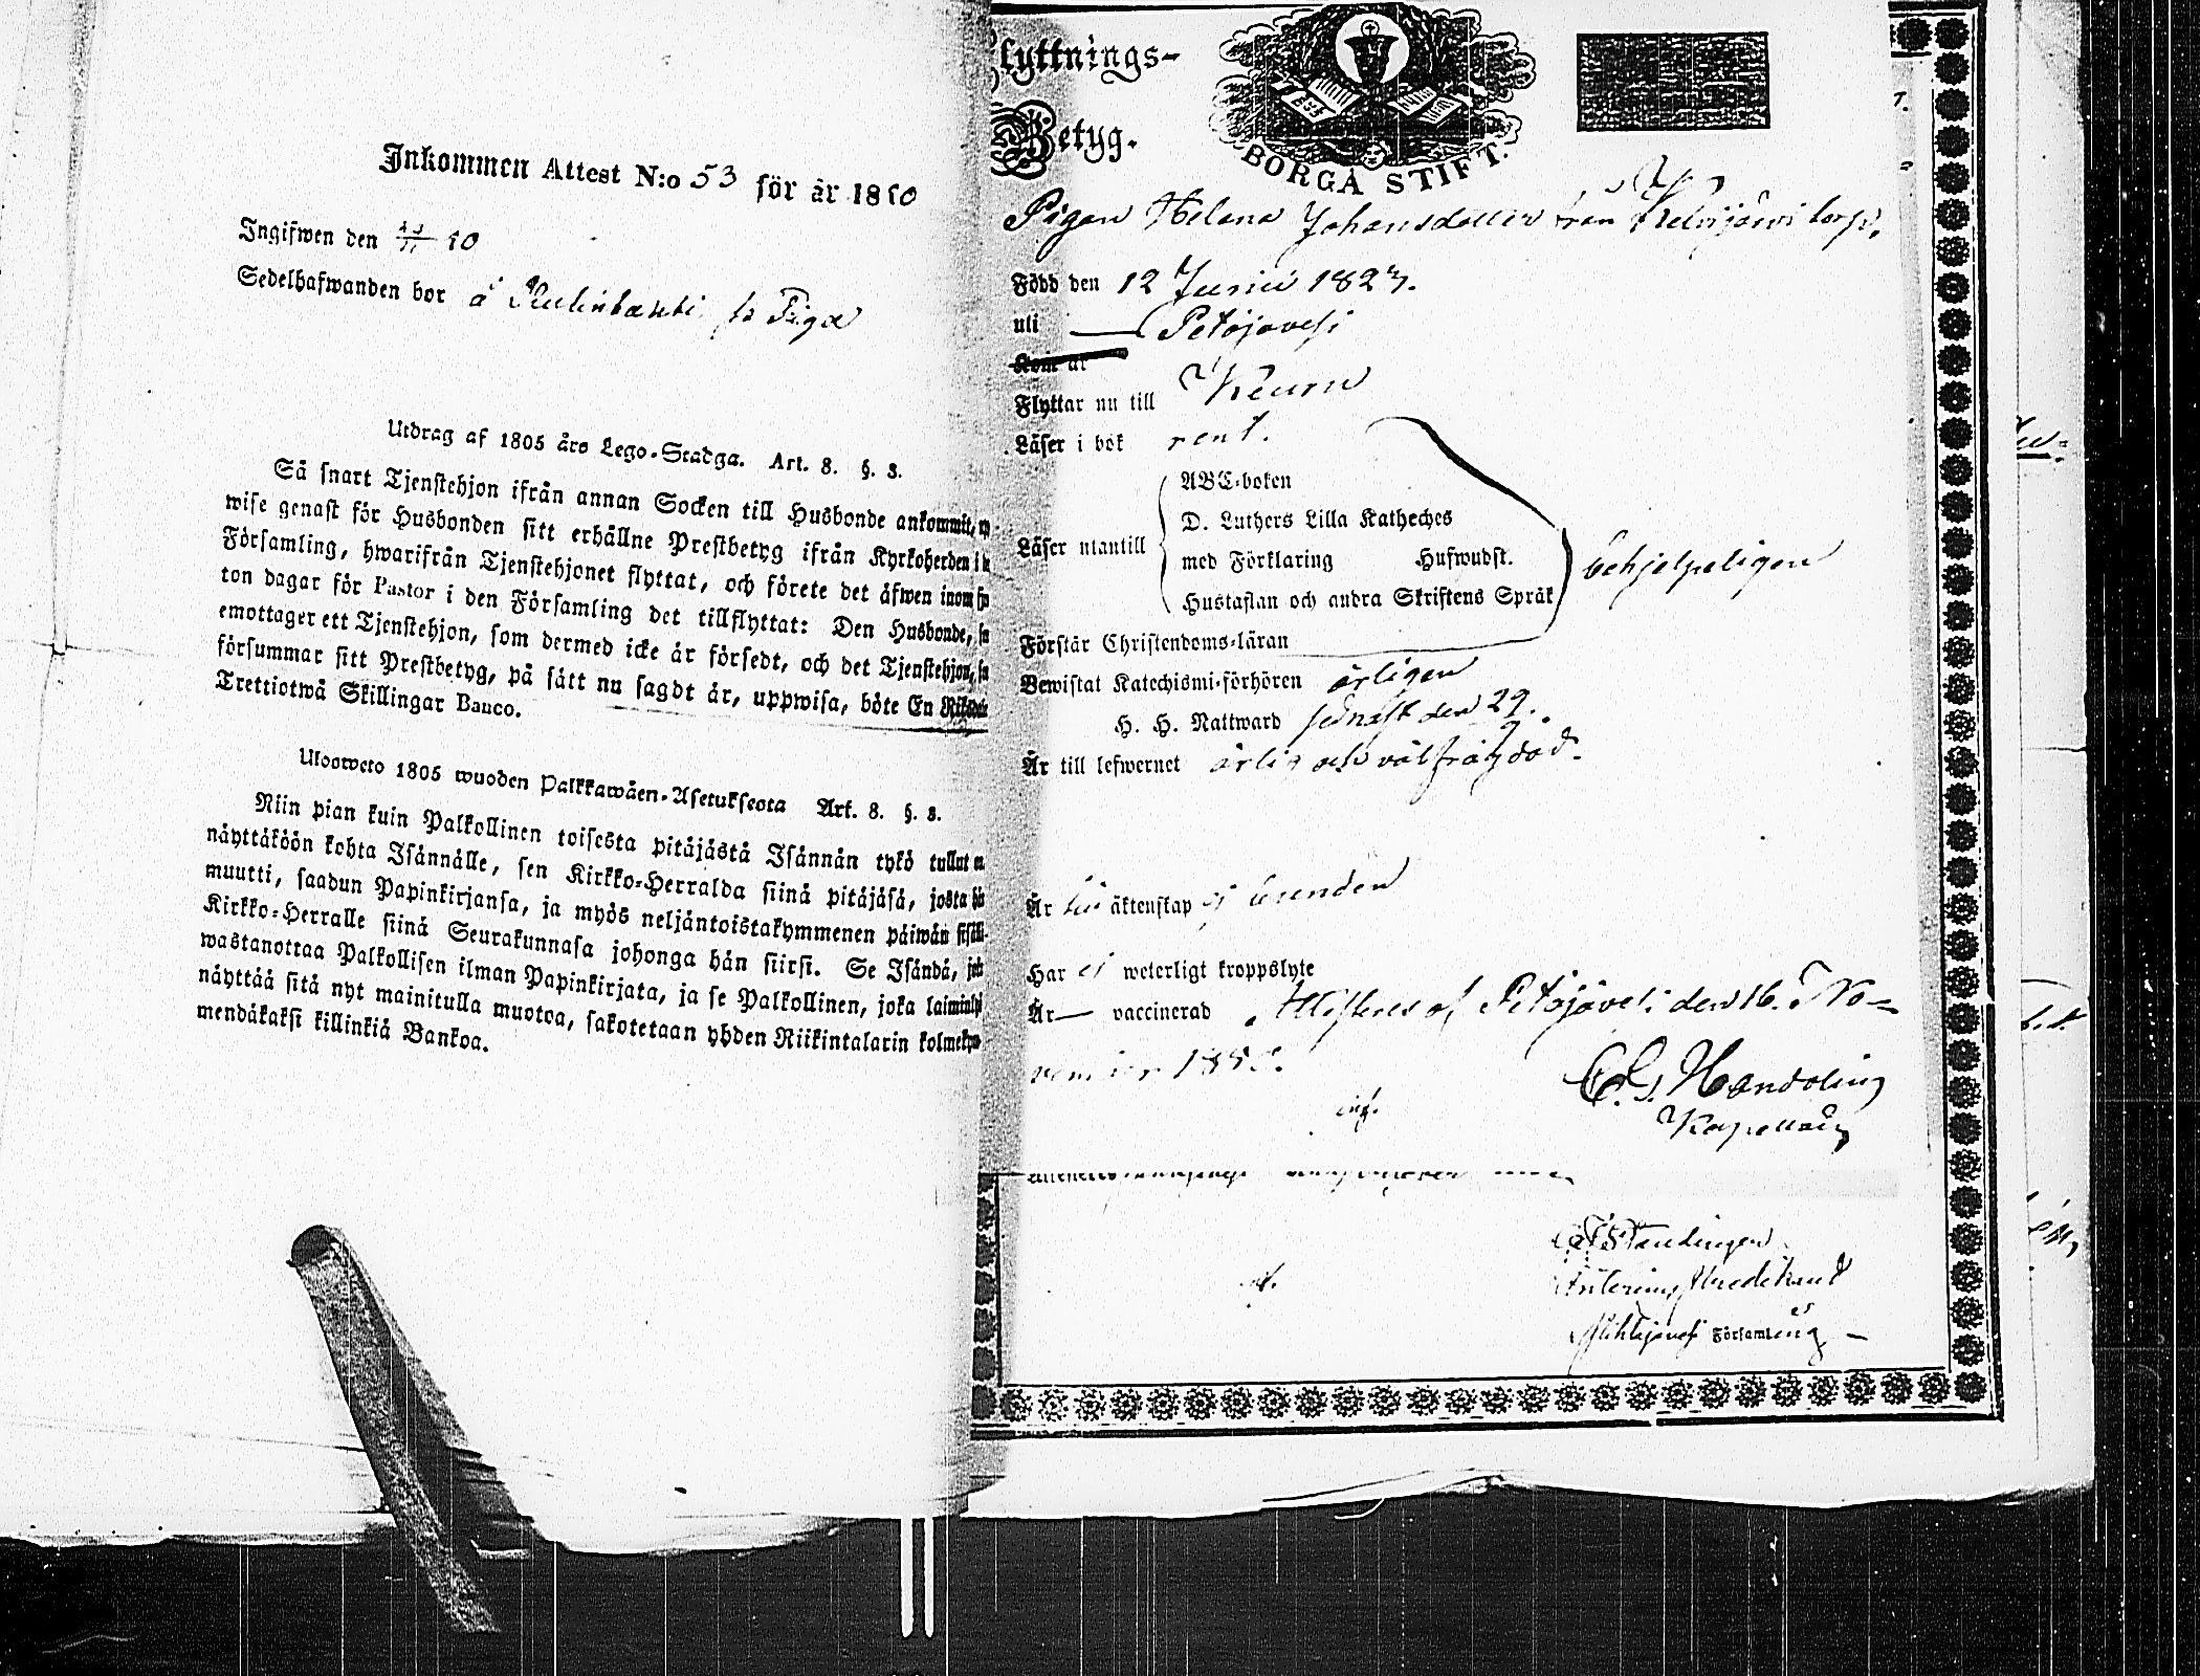 Inkommen Attest N:o 53 för år 1850
Ingifwen den 23/11 50
Sedelhafwanden bor å som Piga
Utdrag af 1805 års Lego-Stadga. Art. 8. §. 3.
Så snart Tjenstehjon ifrån annan Socken till Husbonde ankommit,
wise genast för Husbonden sitt erhållne Prestbetyg ifrån Kyrkoherden i
Församling, hwarifrån Tjenstehjonet flyttat, och förete det äfwen inom
ton dagar för Pastor i den Församling det tillflyttat: Den Husbonde,
emottager ett Tjenstehjon, som dermed icke är försedt, och det Tjenstehjon,
försummar sitt Prestbetyg, på sätt nu sagdt är, uppwisa, böte En Riksdaler
Trettiotwå Skillingar Banco.
Ulosweto 1805 wuoden Palkkawäen-Asetuksesta Art. 8. §. 3.
Niin pian kuin Palkollinen toisesta pitäjästä Isännän tykö tullut on
näyttäköön kohta Isännälle, sen Kirkko-Herralda siinä pitäjäsä, josta hän
muutti, saadun Papinkirjansa, ja myös neljäntoistakymmenen päiwän sisällä
Kirkko-Herralle siinä Seurakunnasa johonga hän siirsi. Se Isändä, joka
wastanottaa Palkollisen ilman Papinkirjata, ja se Palkollinen, joka laiminlyö
näyttää sitä nyt mainitulla muotoa, sakotetaan yhden Riikintalarin kolmekym-
mendäkaksi killinkiä Bankoa.
Flyttnings-
Betyg.
BORGÅ STIFT.
Pigan Helena Johansdotter från torp,
Född den 12 Junii 1823.
uti Petäjävesi
Kom år
Flyttar nu till Keuru
Läser i bok rent.
Läser utantill
ABC-boken
D. Luthers Lilla Katheches
med Förklaring Hufwudst.
Hustaflan och andra Skriftens Språk
behjelpeligen
Förstår Christendoms-läran
Bewistat Katechismi-förhören årligen
H. H. Nattward sednast den 29.
Är till lefwernet ärlig och välfrägdad.
Är till äktenskap ej bunden
Har ej weterligt kroppslyte
Är — vaccinerad Attesteras af Petäjävesi den 16. No-
vember 1850.
C. G. Kapellan
Interims Predikant
Församling